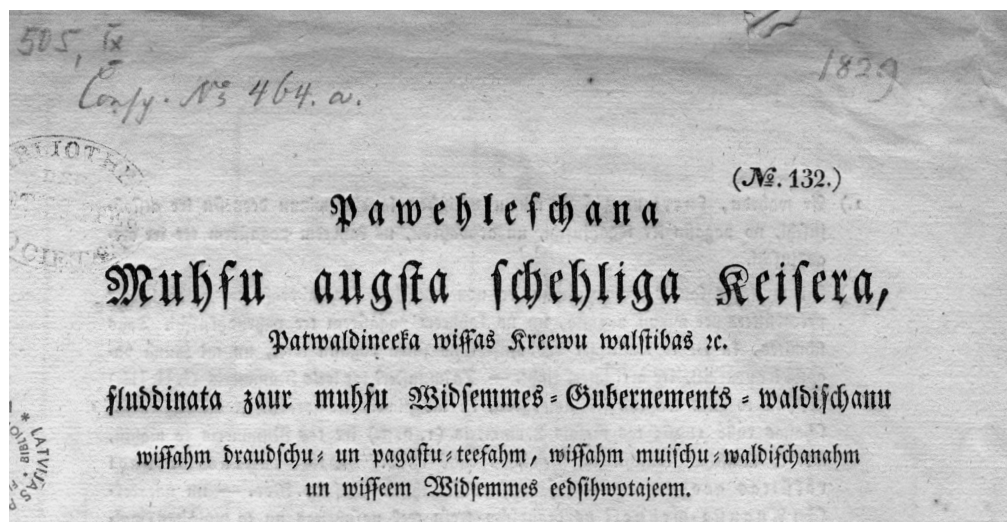 505, IX
Consp. № 464. a.
1829
BIBLIOTHE
DER
SOCIETE
(№. 132.)
Pawehleschana
Muhsu augsta schehliga Keisera,
Patwaldineeka wissas Kreewu walstibas ꝛc.
sluddinata zaur muhsu Widsemmes-Gubernements-waldischanu
wissahm draudschu- un pagastu-teesahm, wissahm muischu-waldischanahm
un wisseem Widsemmes eedsihwotajeem.
* LATVIJAS